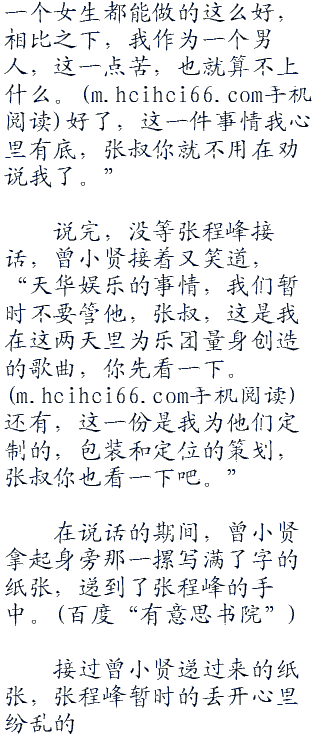 一个女生都能做的这么好，
相比之下，我作为一个男
人，这一点苦，也就算不上
什么。(m.hcihci66.com手机
阅读)好了，这一件事情我心
里有底，张叔你就不用在劝
说我了。”
说完，没等张程峰接
话，曾小贤接着又笑道，
“天华娱乐的事情，我们暂
时不要管他，张叔，这是我
在这两天里为乐团量身创造
的歌曲，你先看一下。
(m.hcihci66.com手机阅读)
还有，这一份是我为他们定
制的，包装和定位的策划，
张叔你也看一下吧。”
在说话的期间，曾小贤
拿起身旁那一摞写满了字的
纸张，递到了张程峰的手
中。(百度“有意思书院”)
接过曾小贤递过来的纸
张，张程峰暂时的丢开心里
纷乱的